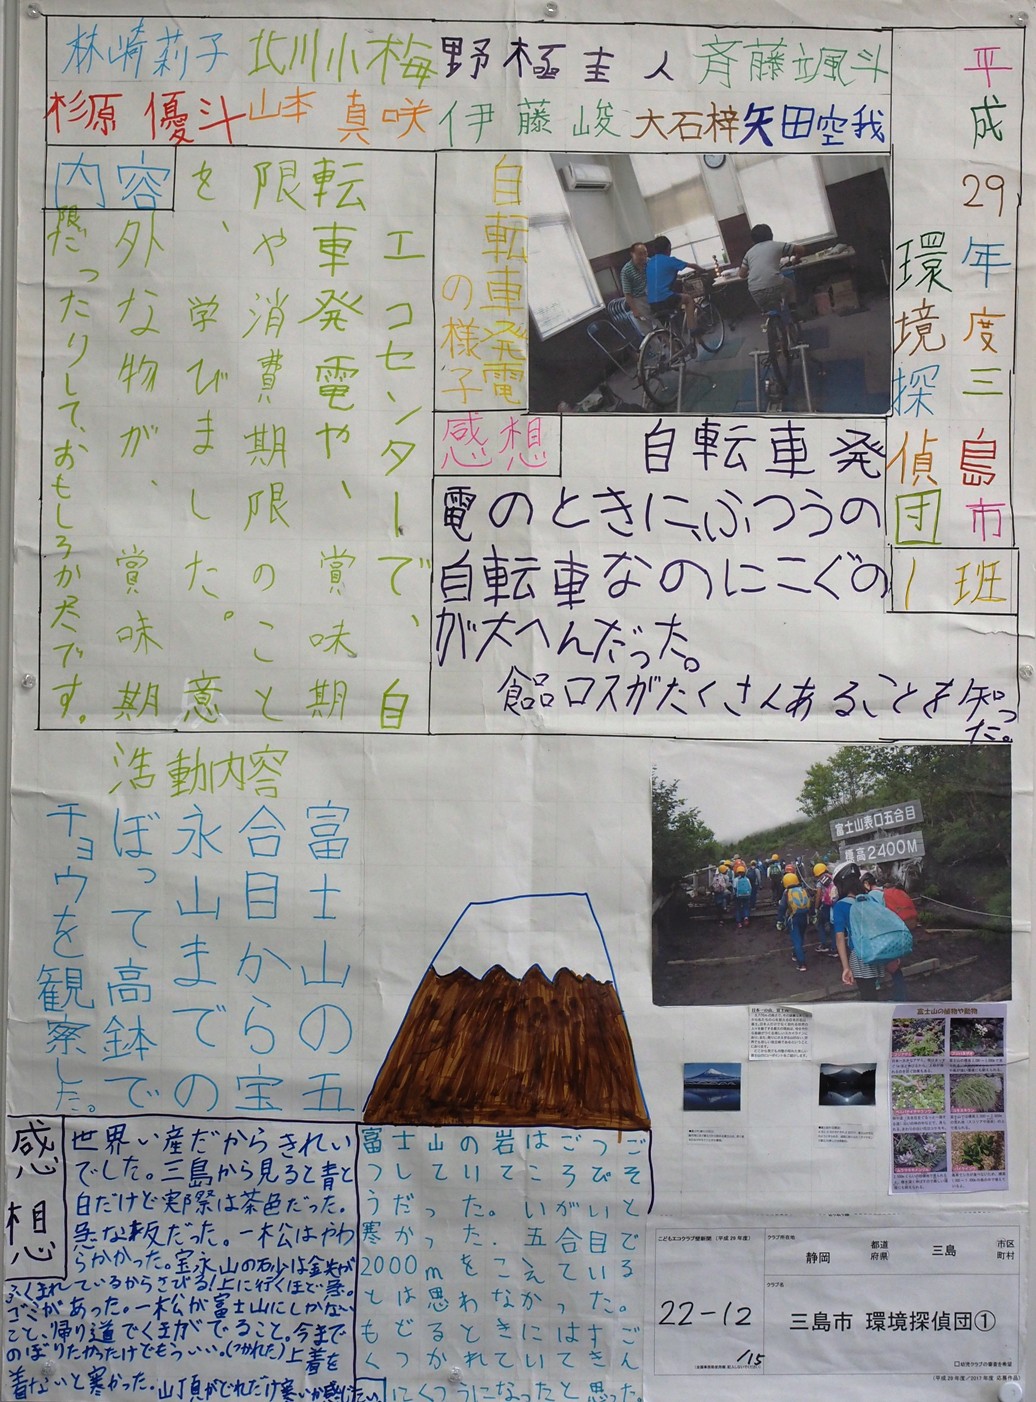 平成29年度三島市
環境探偵団
1班
林崎莉子 北川小梅 野極圭人 斉藤颯斗
杉原優斗 山本真咲 伊藤峻 大石梓 矢田空我
自転車発電
の様子
感想
自転車発
電のときに、ふつうの
自転車なのにこぐの
が大へんだった。
食品ロスがたくさんあることを知っ
た。
内容
エコセンターで、自
転車発電や、賞味期
限や消費期限のこと
を、学びました。意
外な物が、賞味期
限だったりして、おもしろかったです。
活動内容
富士山の五
合目から宝
永山までの
ぼって高鉢で
チョウを観察した。
富士山表口五合目
標高2400M
富士山の植物や動物
感想
世界い産だからきれい
でした。三島から見ると青と
白だけど実際は茶色だった。
急な坂だった。一松はやわ
らかかった。宝永山の砂は金光が
ふくまれているからさびる!上に行くほど急。
ゴミがあった。一松が富士山にしかない
こと、帰り道でくまがでること。今まで
のぼりたかったけでもういい。(つかれた)上着を
着ないと寒かった。山丁頁がどれだけ寒いか感じたい
富士山の岩はごつご
つしていてころびそ
うだった。いがいと
寒かった。五合目で
2000mをこえている
とは思わなかった。
もどるときにはすご
くつかれていてきん
にくつうになったと思った。
こどもエコクラブ壁新聞(平成29年度)
22-12
/15
クラブ所在地
静岡 都道府県 三島 市区町村
クラブ名
三島市 環境探偵団①
□幼児クラブの審査を希望
(平成29年度/2017年度 応募作品)